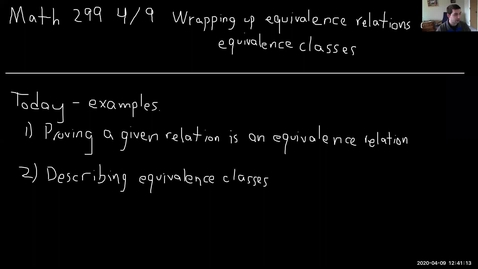 Math 299 4/9 Wrapping up equivalence relations
equivalence classes
Today - examples.
1) Proving a given relation is an equivalence relation
2) Describing equivalence classes
2020-04-09 12:41:13